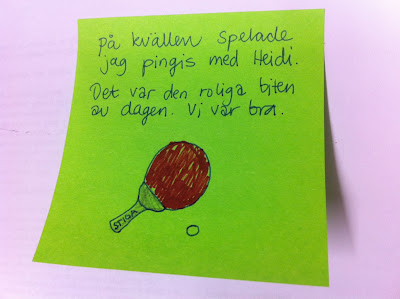 På kvällen spelade
jag pingis med Heidi.
Det var den roliga biten
av dagen. Vi var bra.
STIGA